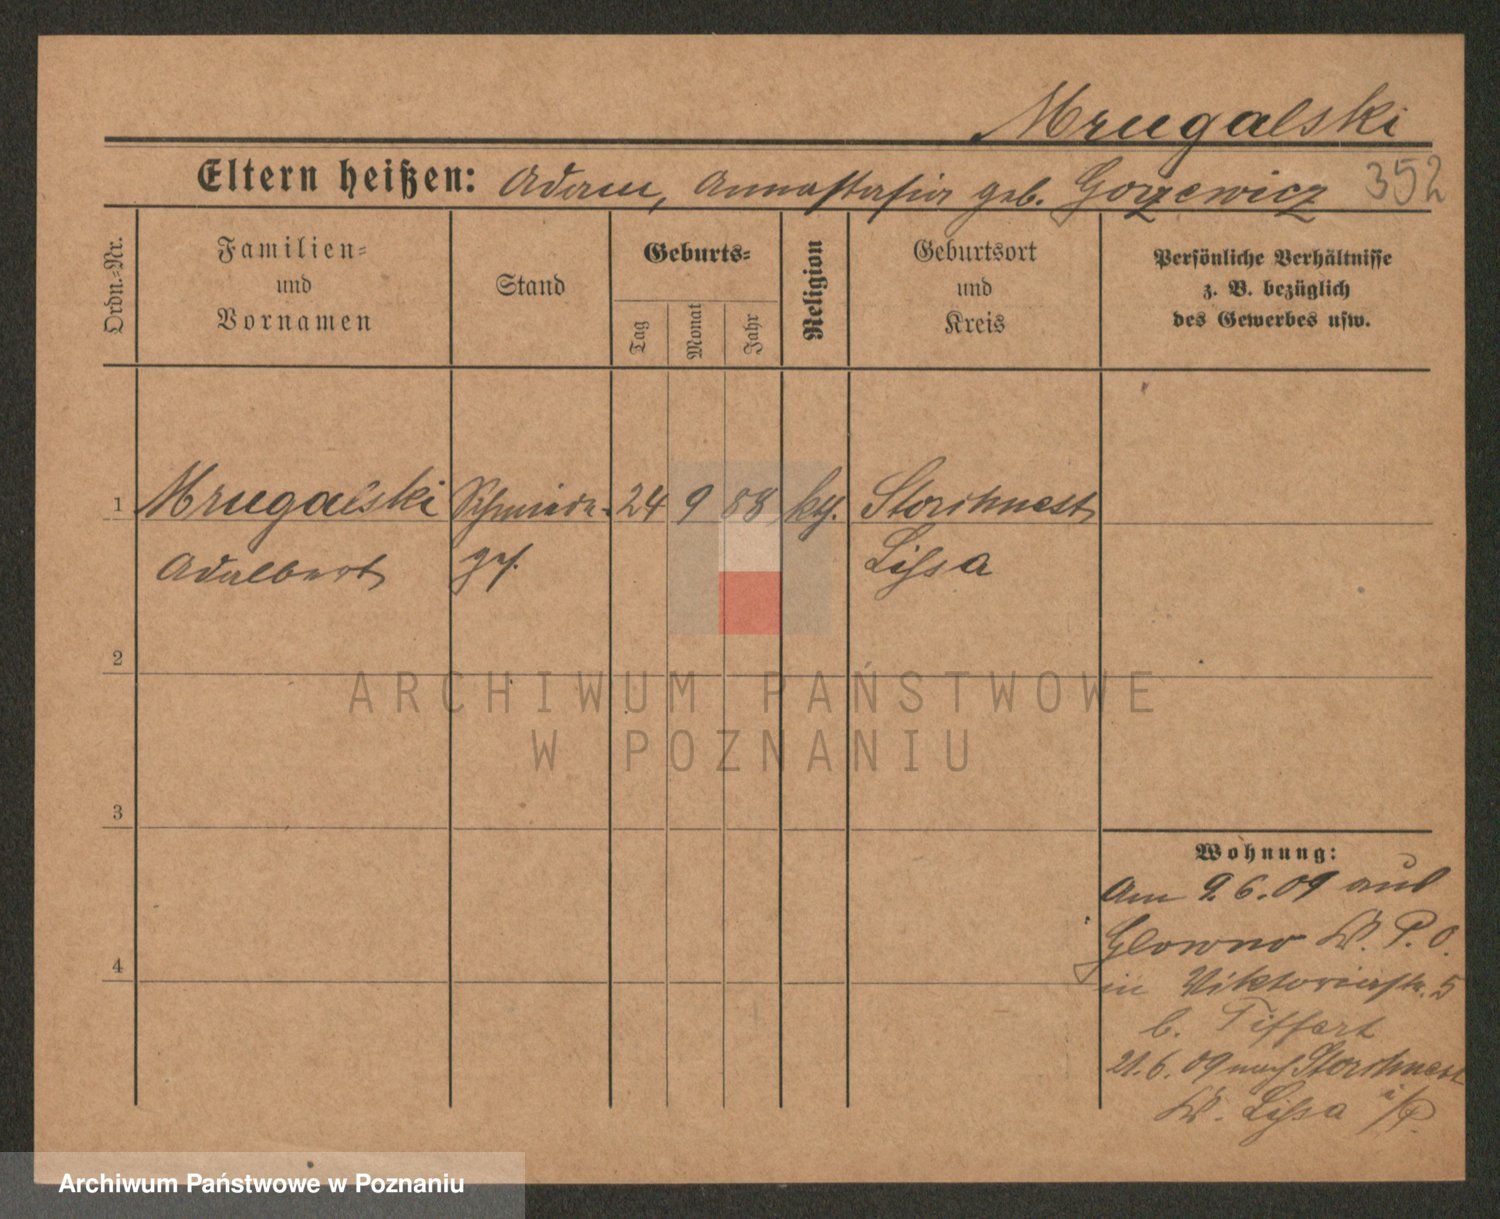 Mrugalski
Eltern heißen: Adam, Annastasia geb. Gorzewicz 352
Ordn.-Nr.
Familien-
und
Vornamen
Stand
Geburts-
Tag
Monat
Jahr
Religion
Geburtsort
und
Kreis
Persönliche Verhältnisse
z. B. bezüglich
des Gewerbes usw.
1 Mrugalski Schmiede- 24 9 88 kth. Storchnest
Adalbert ges. Lissa
2
3
4
Wohnung:
Am 9.6.09 aus
Glowno Kr. P. O.
in Viktoriastr. 5
b. Tiffert
21.6.09 nach Storchnest
Kr. Lissa i/P.
ARCHIWUM PAŃSTWOWE
W POZNANIU
Archiwum Państwowe w Poznaniu